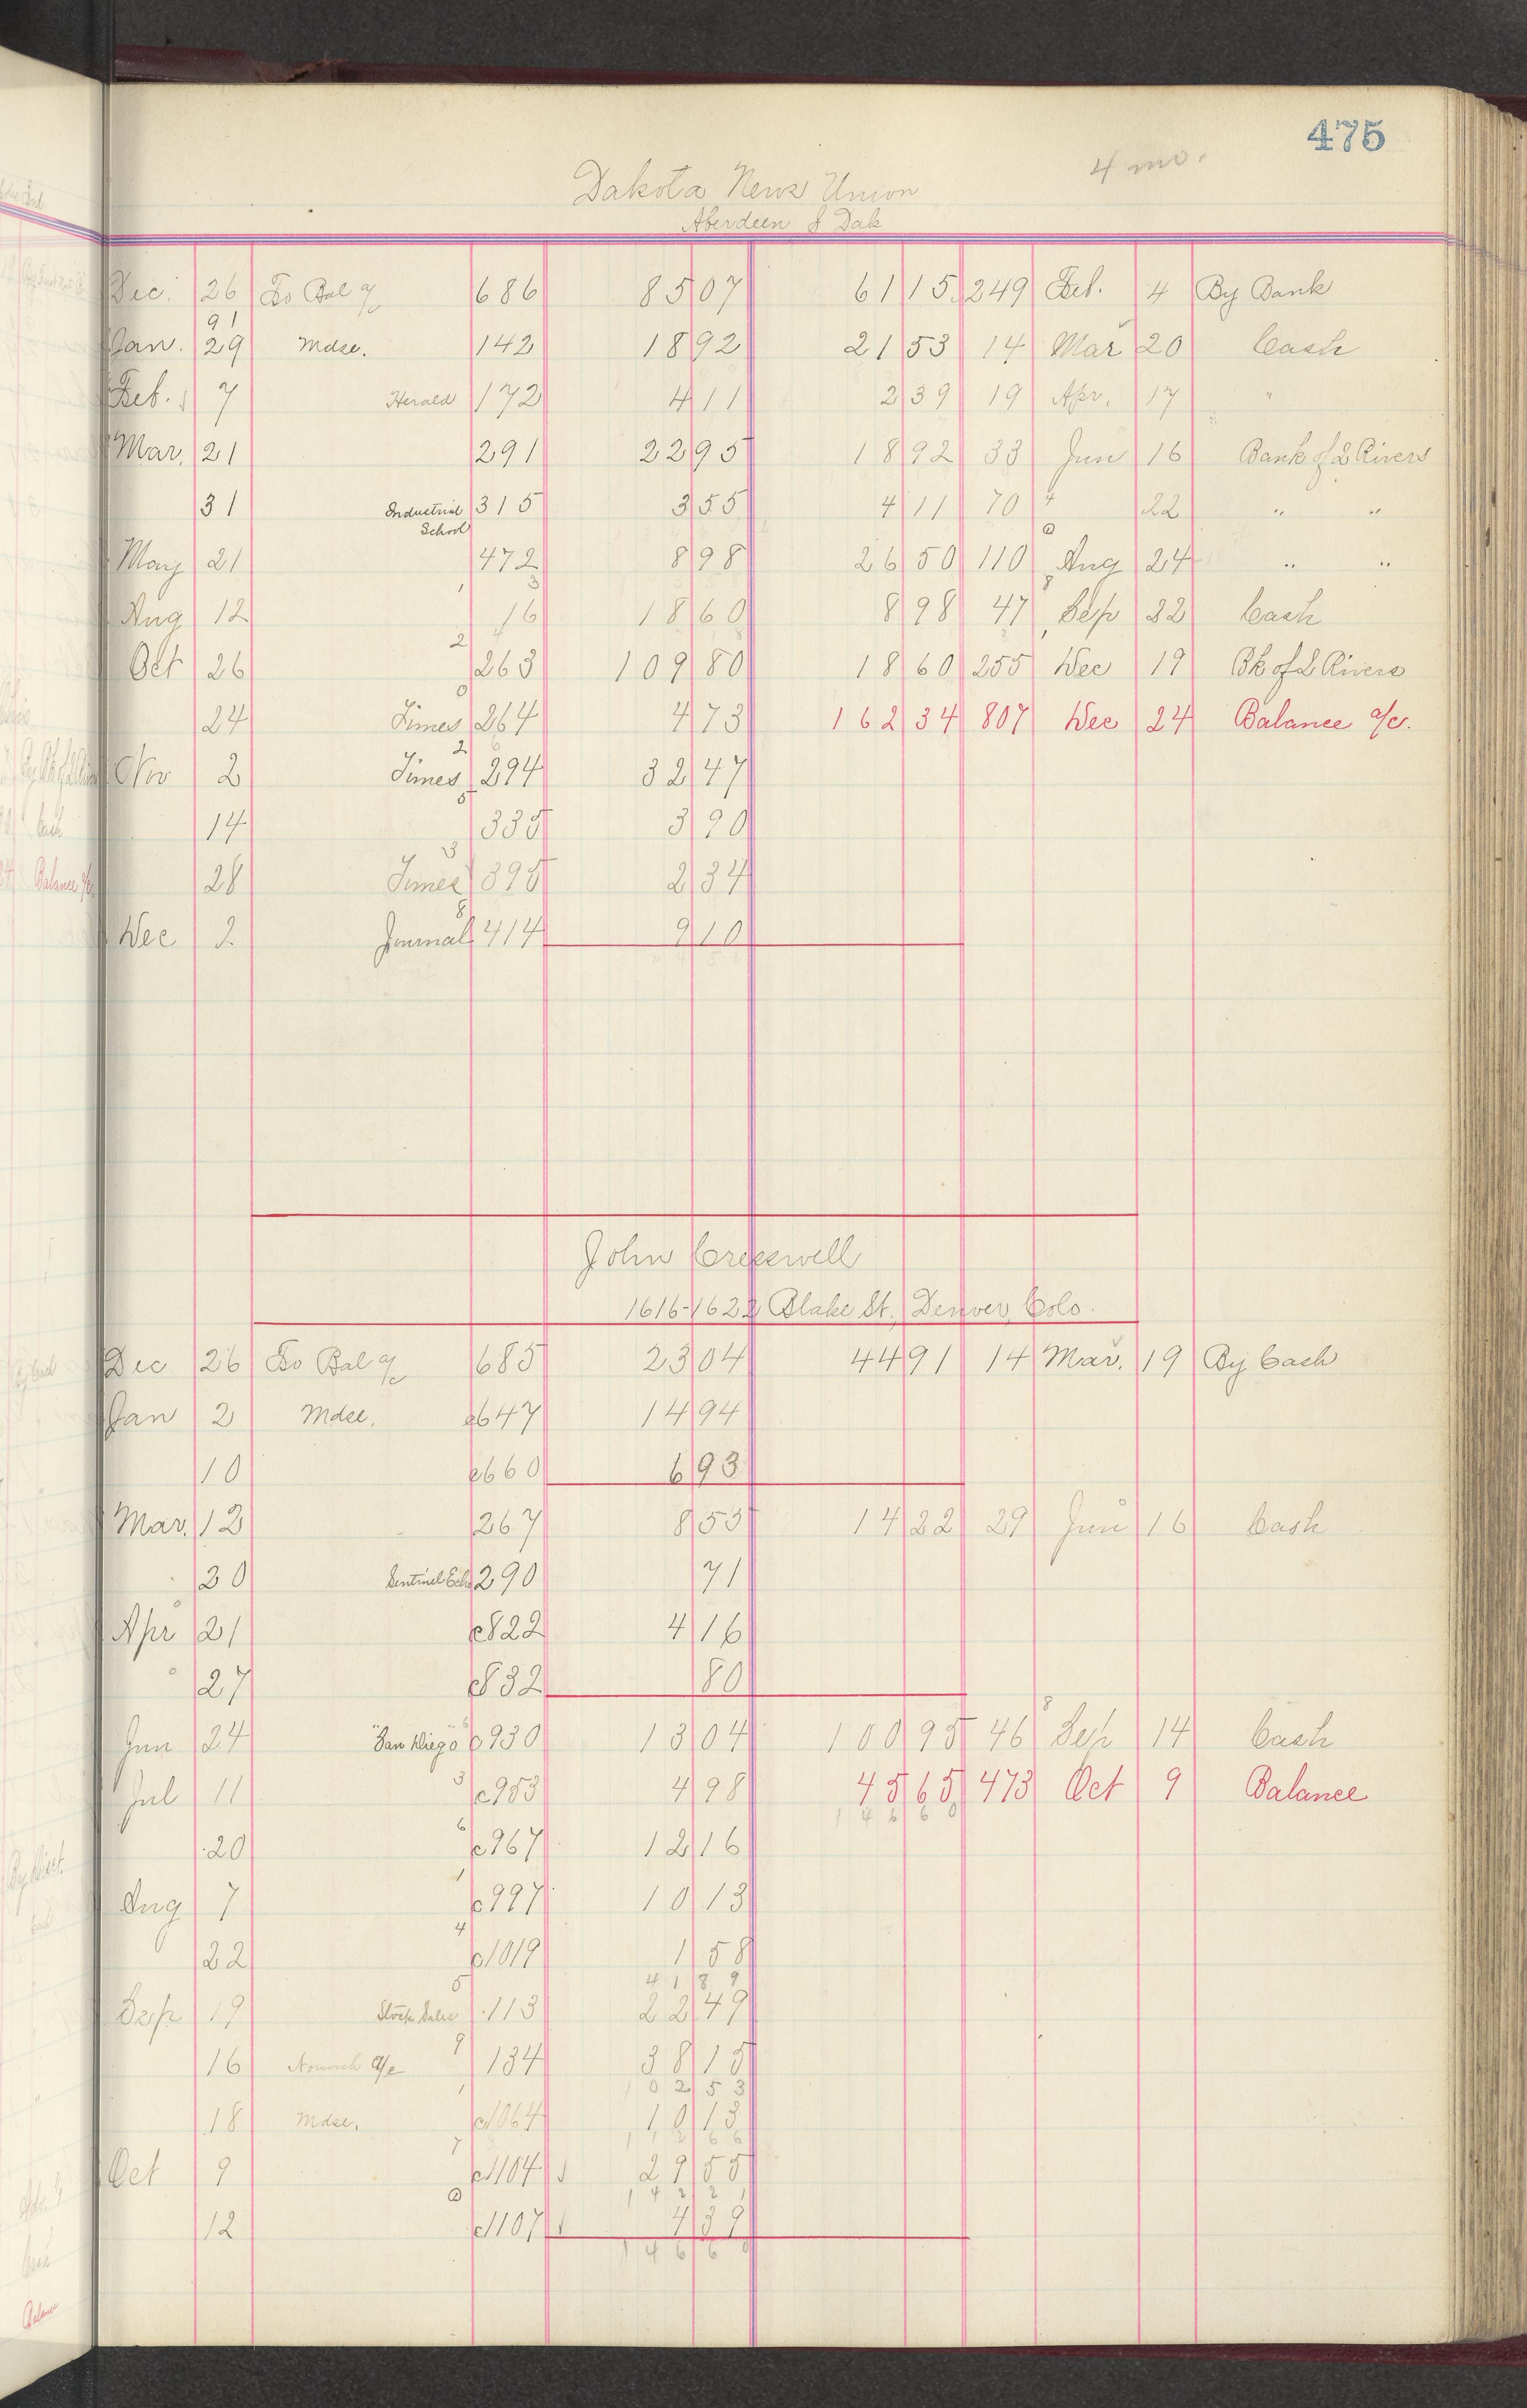 475
4 mo.
Dakota News Union
Aberdeen S Dak
Dec. 26 To Bal a/c 686 85 07 61 15 249 Feb. 4 By Bank
91
Jan. 29 Mdse. 142 18 92 21 53 14 Mar 20 Cash
Feb. 7 Herald 172 4 11 2 39 19 Apr. 17 "
Mar. 21 291 22 95 18 92 33 Jun 16 Bank of 2 Rivers
31 Industrial School 315 3 55 4 11 70 " 22 " "
May 21 472 8 98 26 50 110 Aug 24 " "
Aug 12 16 18 60 8 98 47 Sep 22 Cash
Oct 26 263 109 80 18 60 255 Dec 19 Bk of 2 Rivers
24 Times 264 4 73 162 34 807 Dec 24 Balance a/c.
Nov 2 Times 294 32 47
14 335 3 90
28 Times 395 2 34
Dec 2 Journal 414 9 10
John Cresswell
1616-1622 Blake St. Denver Colo.
Dec 26 To Bal a/c 685 23 04 44 91 14 Mar. 19 By Cash
Jan 2 Mdse. c647 14 94
10 c660 6 93
Mar. 12 267 8 55 14 22 29 Jun 16 Cash
20 Sentinel Echo 290 71
Apr 21 c822 4 16
27 c832 80
Jun 24 "San Diego" c930 13 04 100 95 46 Sep 14 Cash
Jul 11 c953 4 98 45 65 473 Oct 9 Balance
146 60
20 c967 12 16
Aug 7 c997 10 13
22 c1019 1 58
41 89
Sep 19 Stock Sales 113 22 49
16 a/c 134 38 15
102 53
18 Mdse. c1064 10 13
112 66
Oct 9 c1104 29 55
142 21
12 c1107 4 39
146 60